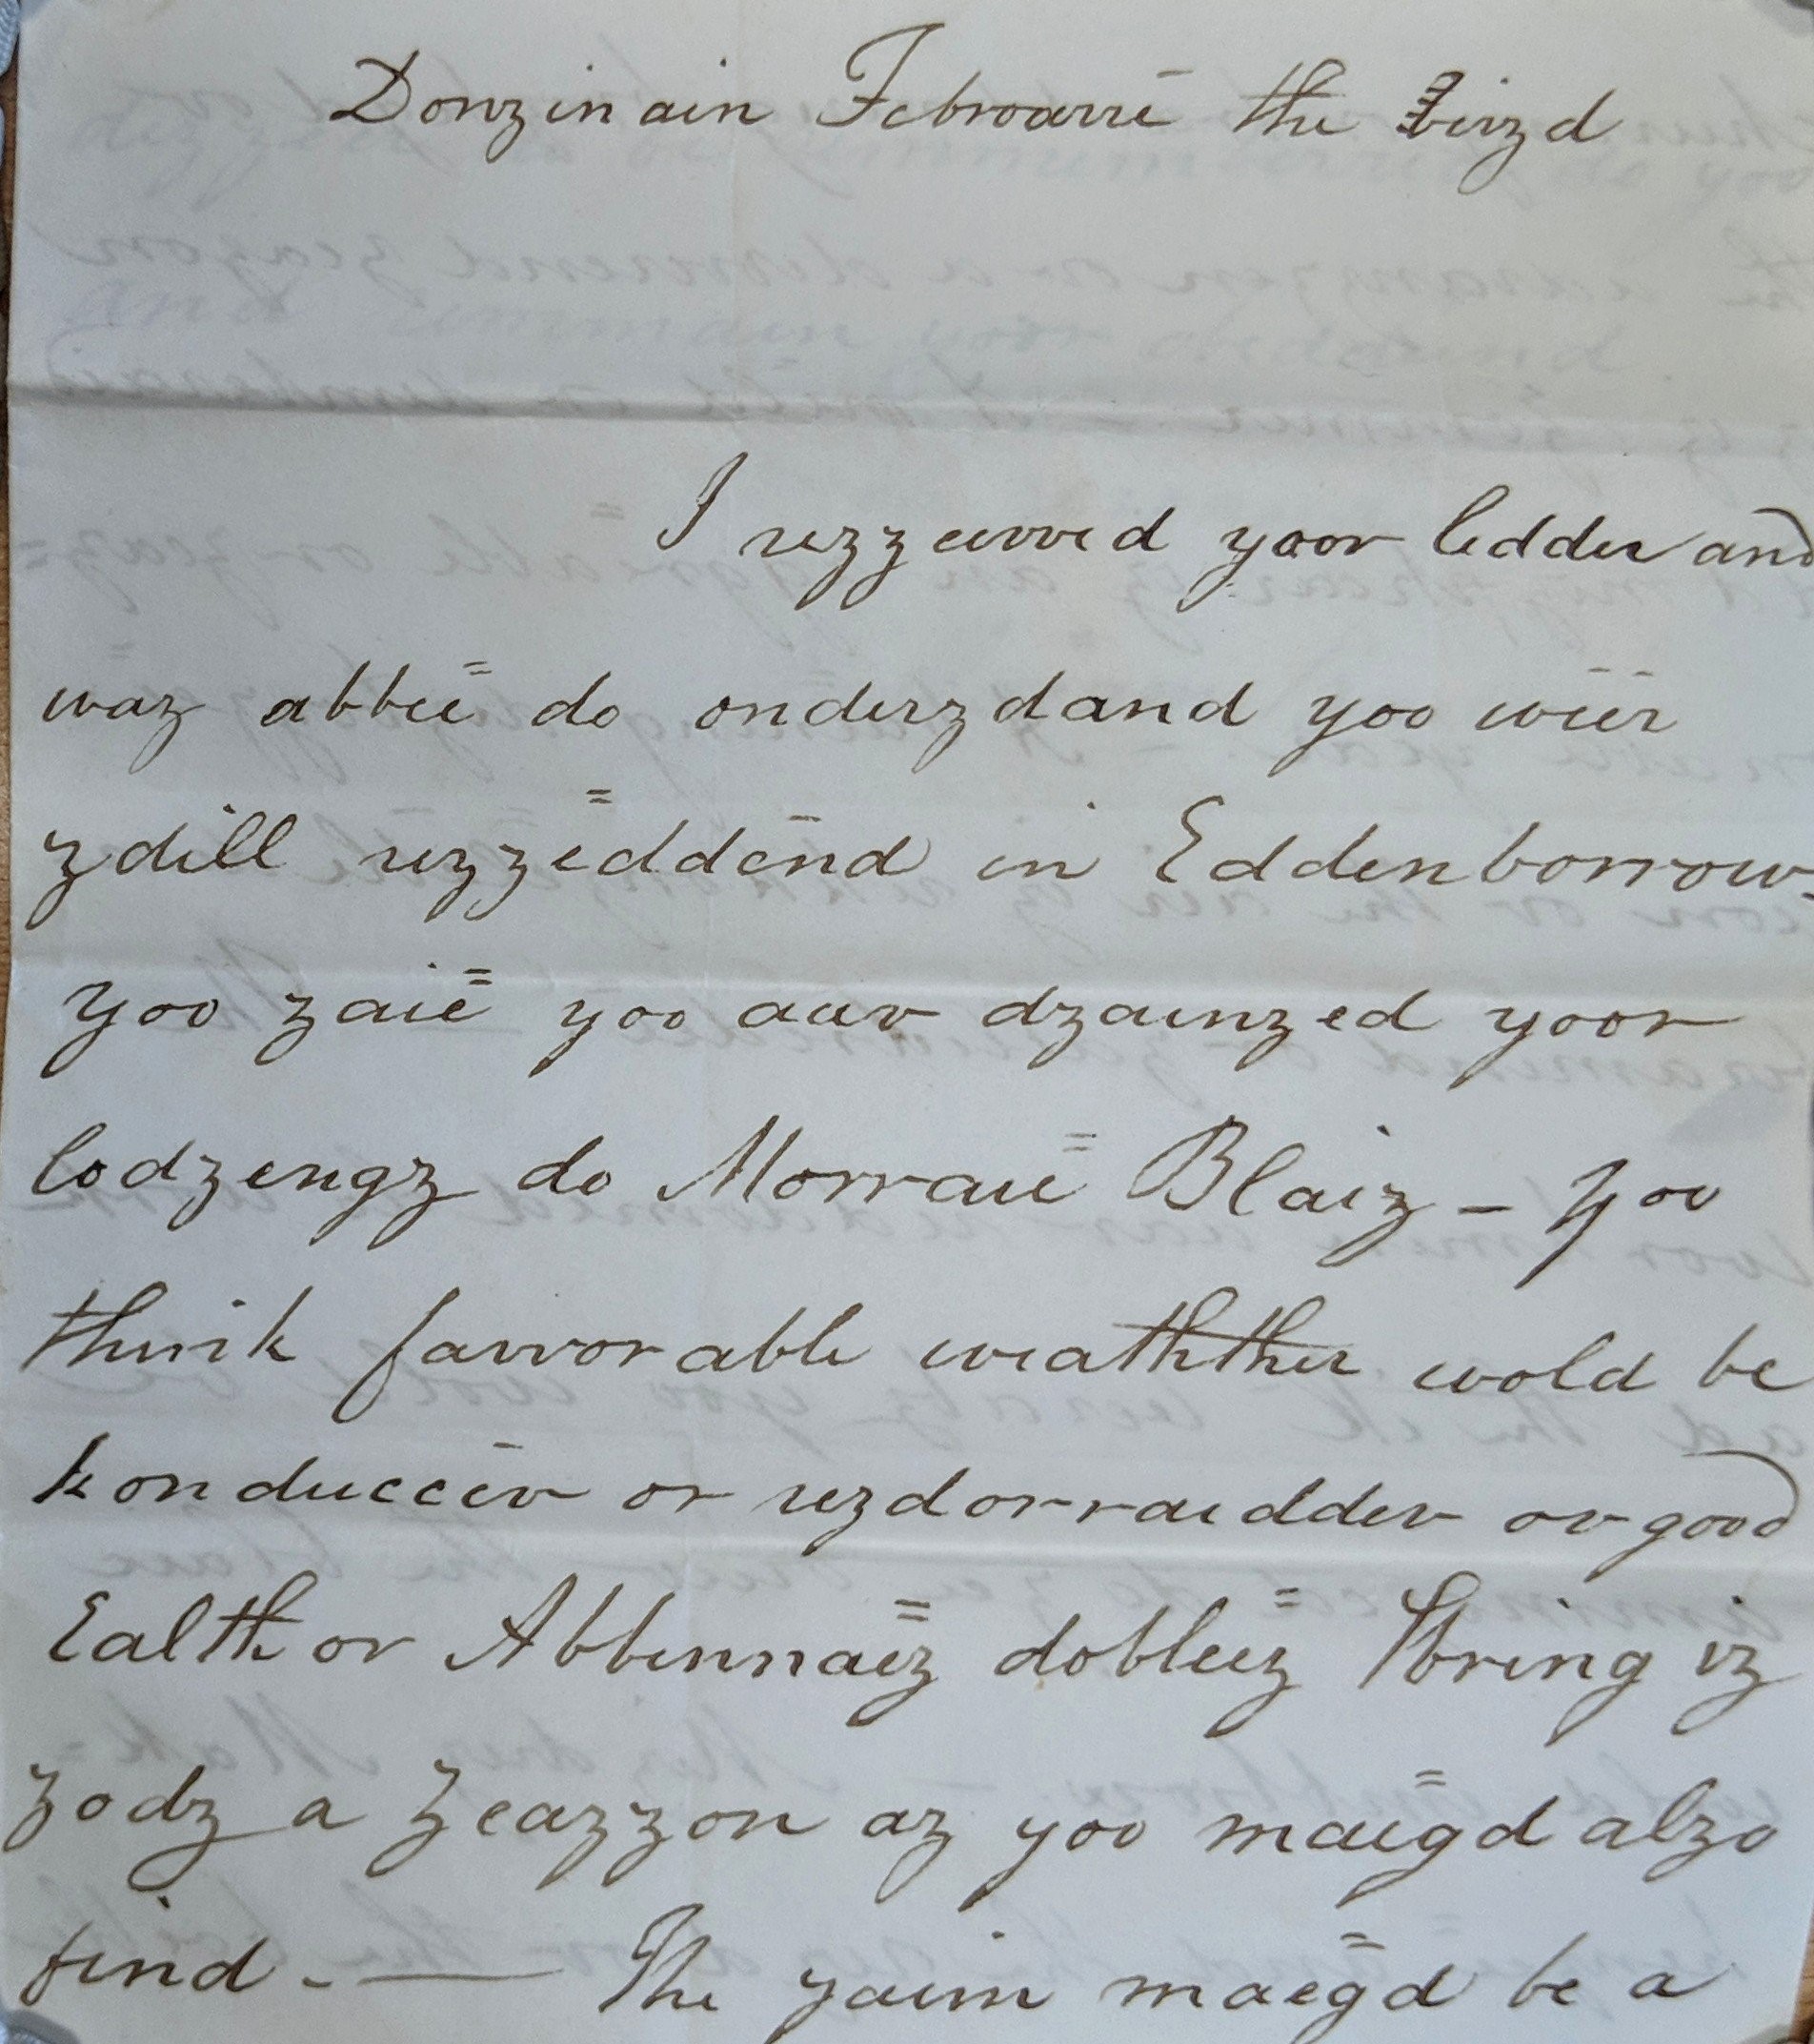 Donzinain Febroarrē the Zirzd
I rezzeivved yoor ledder and
waz abbēē do onderzdand yoo wēēr
zdill rezzēddēnd in Eddenborrow.
yoo zaiē yoo aav dzainzed yoor
lodzengz do Morraiē Blaiz – yoo
think favvorable weathther wold be
konduccēv or rezdorraidder ov good
Ealth or Abbennaēz dobleēz Sbring iz
zodz a zeazzon az yoo maiēgd alzo
find. — The yaim maēgd be a